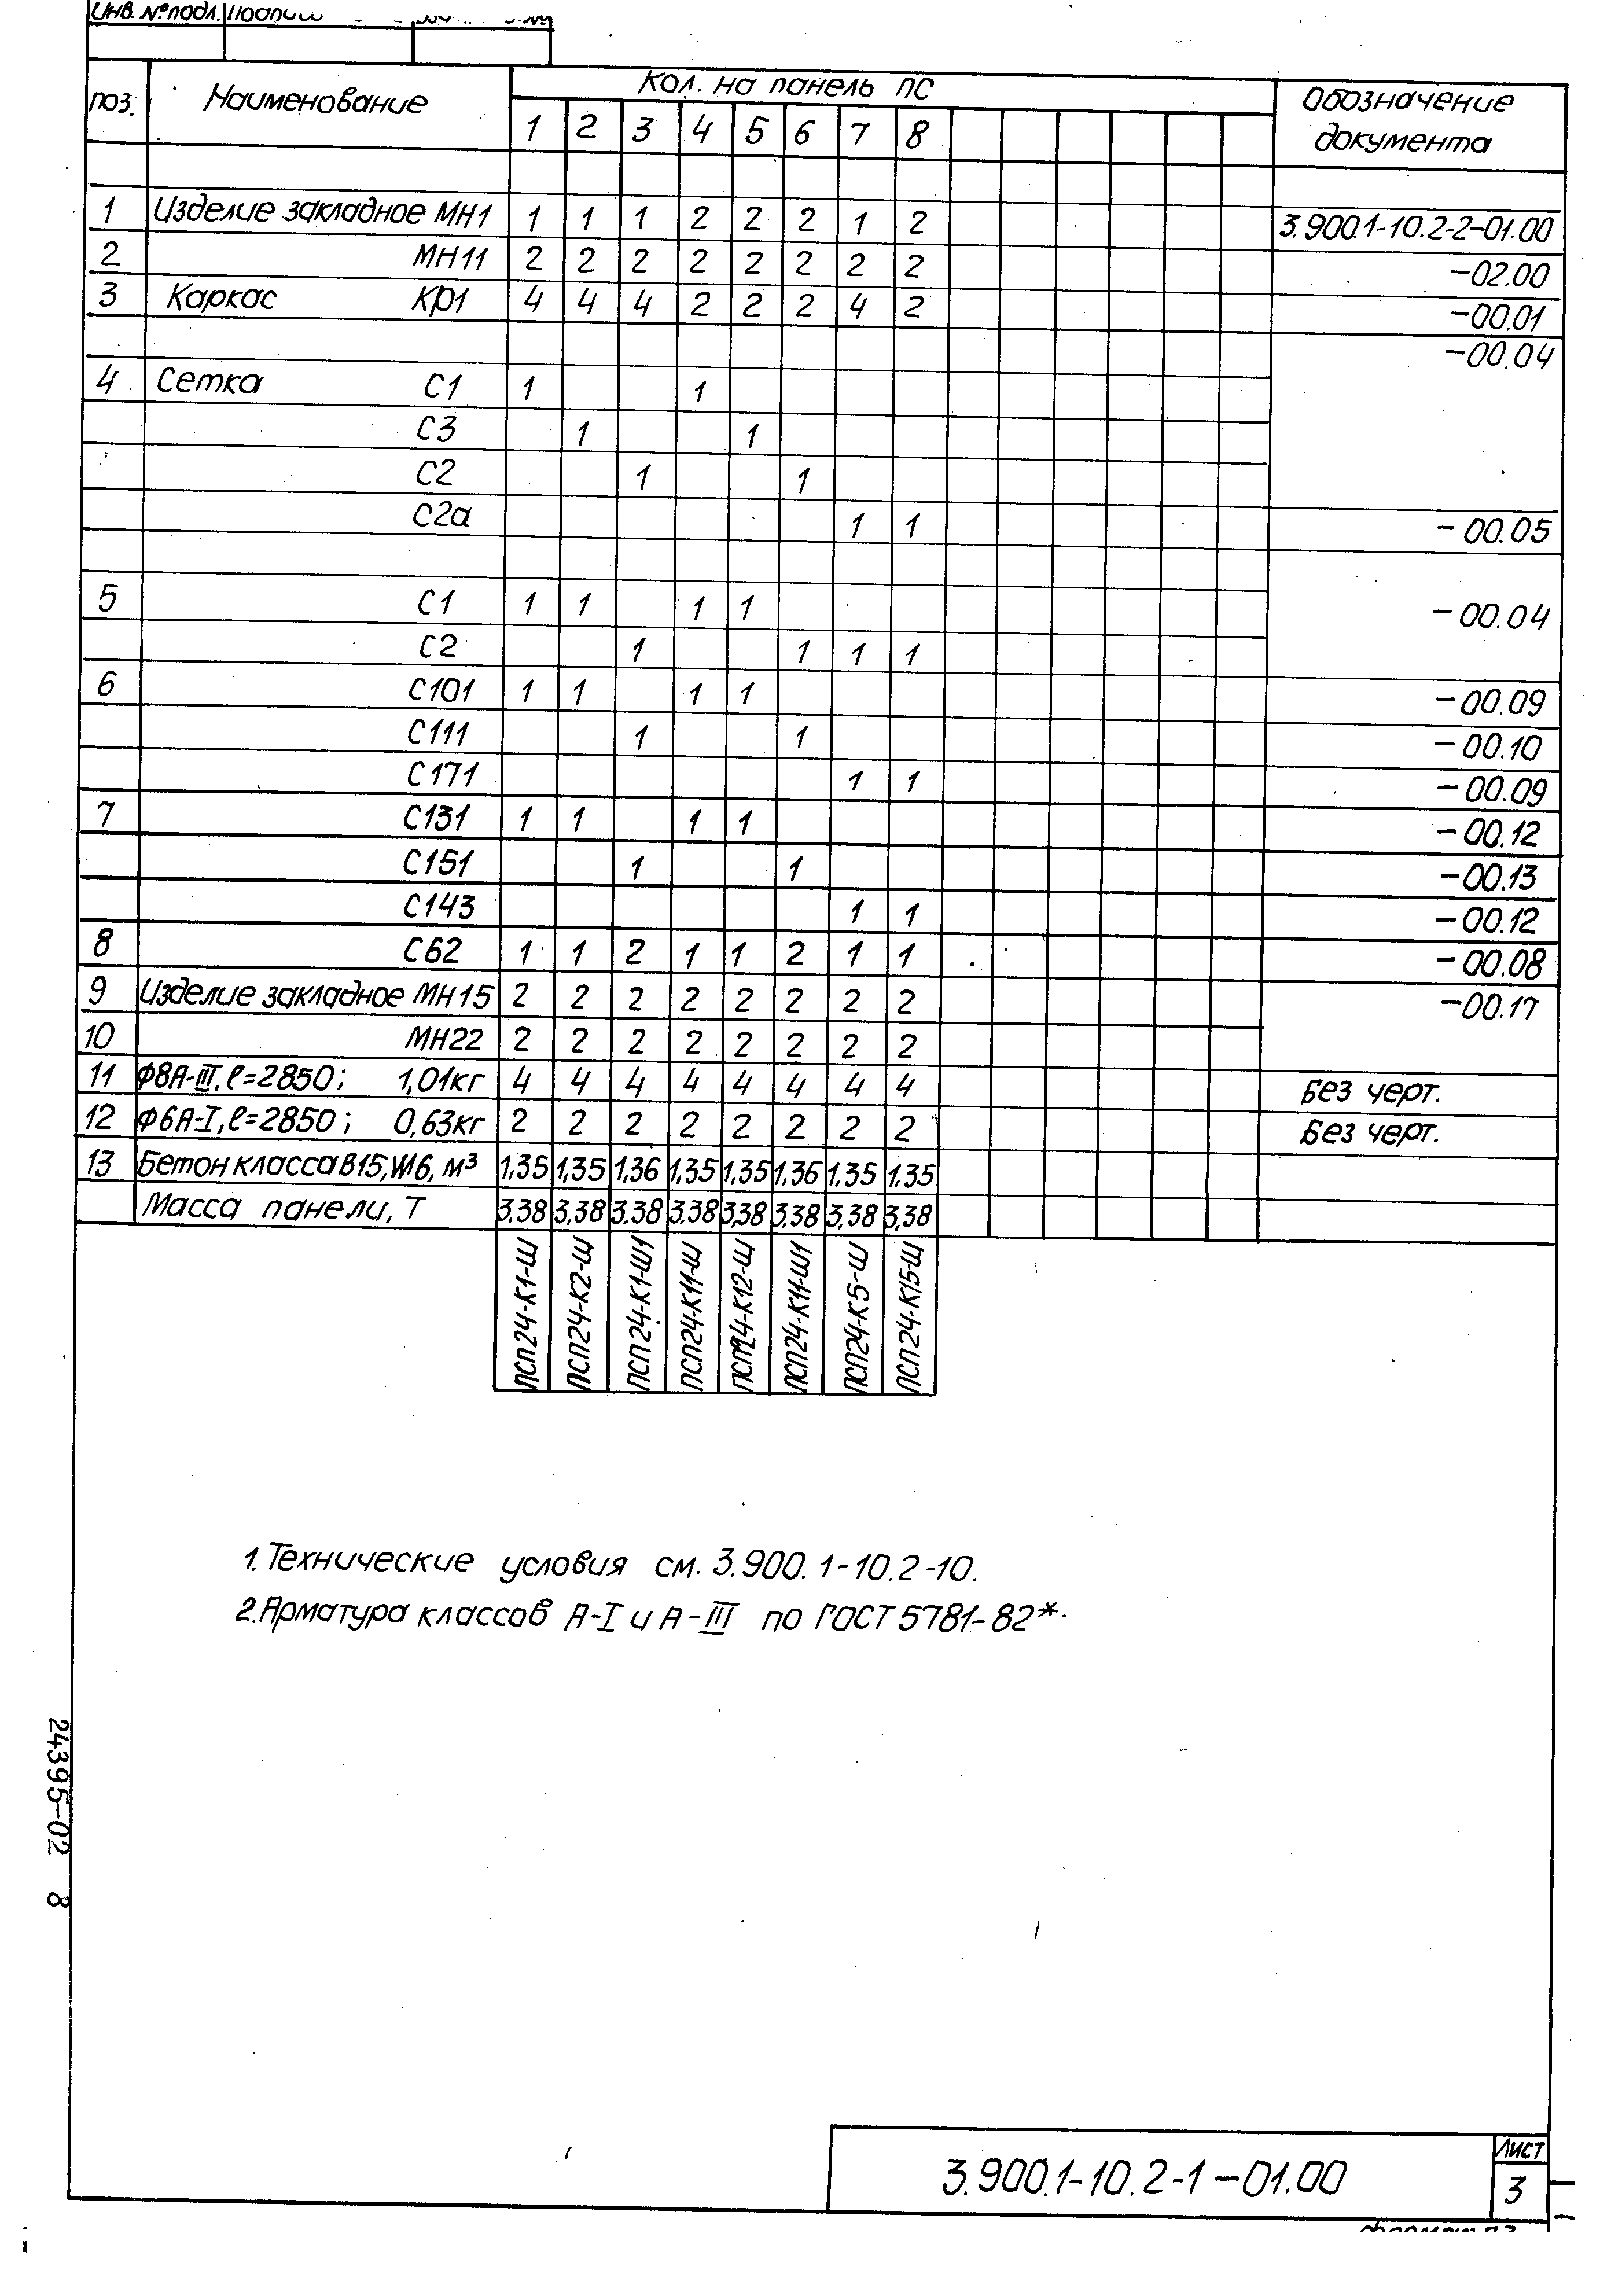 Инв. № подл.
Кол. на панель ПС
поз. Наименование 1 2 3 4 5 6 7 8 Обозначение
документа
1 Изделие закладное МН1 1 1 1 2 2 2 1 2 3.900.1-10.2-2-01.00
2 МН11 2 2 2 2 2 2 2 2 -02.00
3 Каркас КР1 4 4 4 2 2 2 4 2 -00.01
-00.04
4 Сетка С1 1 1
С3 1 1
С2 1 1
С2а 1 1 -00.05
5 С1 1 1 1 1 -00.04
С2 1 1 1 1
6 С101 1 1 1 1 -00.09
С111 1 1 -00.10
С171 1 1 -00.09
7 С131 1 1 1 1 -00.12
С151 1 1 -00.13
С143 1 1 -00.12
8 С62 1 1 2 1 1 2 1 1 -00.08
9 Изделие закладное МН15 2 2 2 2 2 2 2 2 -00.17
10 МН22 2 2 2 2 2 2 2 2
11 Ф8А-III, ℓ=2850; 1,01кг 4 4 4 4 4 4 4 4 Без черт.
12 Ф6А-I, ℓ=2850; 0,63кг 2 2 2 2 2 2 2 2 Без черт.
13 Бетон класса В15, W6, м³ 1,35 1,35 1,36 1,35 1,35 1,36 1,35 1,35
Масса панели, Т 3,38 3,38 3.38 3.38 3,38 3,38 3,38 3,38
ПСП24-К1-Ш
ПСП24-К2-Ш
ПСП24-К1-Ш1
ПСП24-К11-Ш
ПСП24-К12-Ш
ПСП24-К11-Ш1
ПСП24-К5-Ш
ПСП24-К15-Ш
1. Технические условия см. 3.900.1-10.2-10.
2. Арматура классов А-I и А-III по ГОСТ 5781-82*.
24395-02 8
3.900.1-10.2-1-01.00
Лист
3